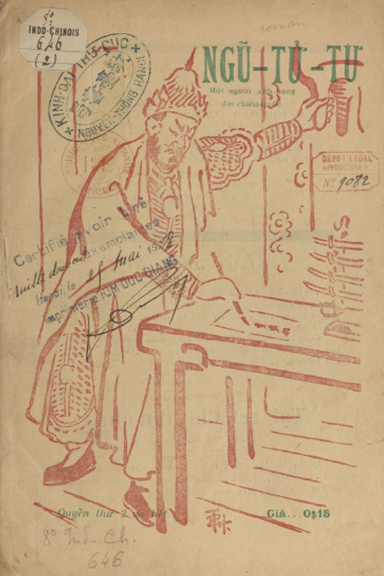 8°
INDO-CHINOIS
646
(2)
KINH-ĐÀI THƯ-CỤC
NGUYỄN-THÔNG HANOI
NGŨ-TỬ-TƯ
Một người anh-hùng
đời chiến-quốc
DEPOT LEGAL
INDOCHINE
N° 9082
Certifié avoir tiré
exemplaires
Hanoi, le
Imprimerie KIM ĐỨC GIANG
Quyển thứ 2 và hết
Giá...0$15
8° Ind-Ch.
646